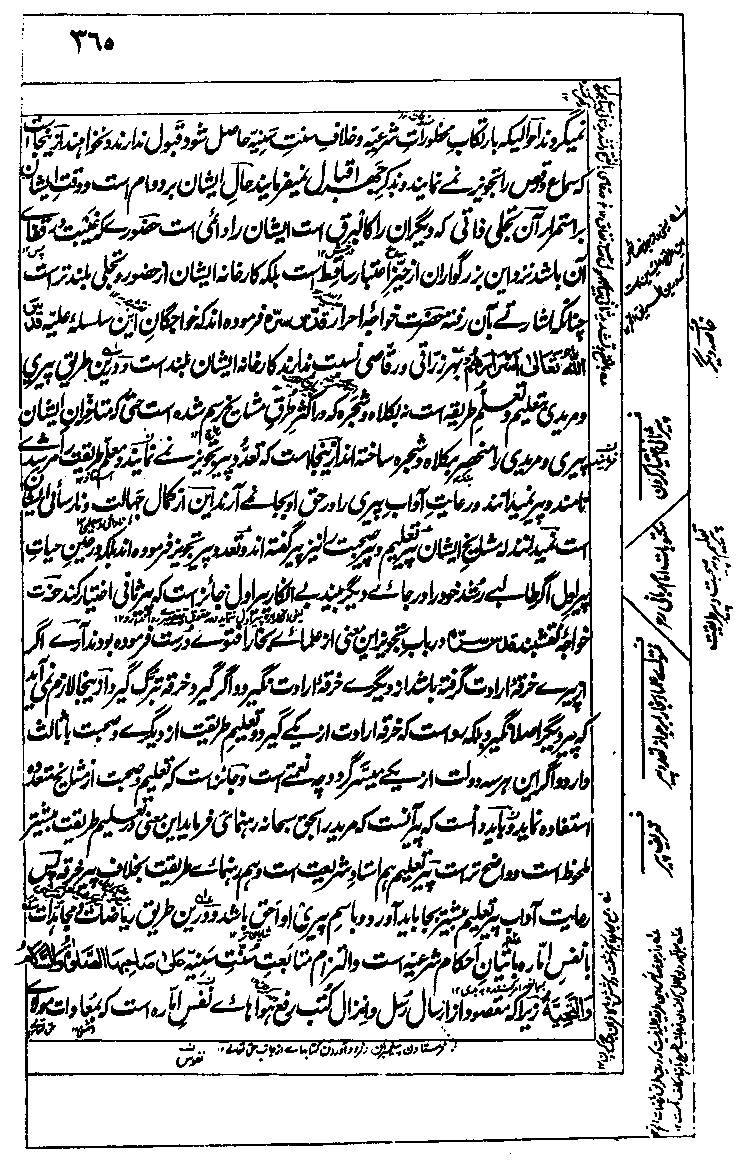 ۳۶۵
نمیگروند احوالیکه بارتکاب محظورات شرعیه و خلاف سنت سنیه حاصل شود قبول ندارند و نخواهند ازینجاست
که سماع و رقص را تجویز نمے نمایند و بذکر جهر اقبال نمیفرمایند حال ایشان بر دوام است و وقت ایشان
بر استمرار آن تجلی ذاتی که دیگران را کالبرق است ایشان را دائمی است حضورے که غیبت در قفاے
آن باشد نزد این بزرگواران از حیز اعتبار ساقط است بلکه کارخانه ایشان از حضور و تجلی بلند تر است
چنانکه اشارتے بآن رفته حضرت خواجه احرار قدس سره فرموده اند که خواجگان این سلسلۀ علیه قدس
الله تعالی اسرارهم بهر زراقی و رقاصی نسبت ندارند کارخانه ایشان بلند است و درین طریق پیری
و مریدی بتعلیم و تعلم طریقه است نه بکلاه و شجره که در اکثر طرق مشایخ رسم شده است حتی که متاخران ایشان
پیری و مریدی را منحصر بکلاه و شجره ساخته اند ازینجا است که تعدد پیر تجویز نمے نمایند و معلم طریقت را مرشدے
نامند و پیر نمیدانند و رعایت آداب پیری را در حق او بجا نمے آرند این از کمال جهالت و نارسائی ایشان
است نمیدانند که مشایخ ایشان پیر تعلیم و پیر صحبت را نیز پیر گفته اند و تعدد پیر تجویز فرموده اند بلکه در عین حیات
پیر اول اگر طالبے رشد خود را در جائے دیگر بیند بے انکار پیر اول جائز است که پیر ثانی اختیار کند حضرت
خواجه نقشبند قدس سره در باب تجویز این معنی از علمائے بخارا فتوے درست فرموده بودند آرے اگر
از پیرے خرقۀ ارادت گرفته باشد از دیگرے خرقۀ ارادت نگیرد و اگر گیرد خرقه تبرک گیرد ازینجا لازم نمی آید
که پیر دیگر اصلا نگیرد بلکه رواست که خرقه ارادت از یکے گیرد و تعلیم طریقت از دیگرے و صحبت با ثالث
دارد و اگر این هر سه دولت از یکے میسر گردد چه نعمتے است و جائز است که تعلیم و صحبت از مشایخ متعدده
استفاده نماید و باید دانست که پیر آنست که مرید را بحق سبحانه رهنمائی فرماید این معنی در تعلیم طریقت بیشتر
ملحوظ است و واضح تر است پیر تعلیم هم استاد شریعت است و هم رهنمائے طریقت بخلاف پیر خرقه پس
رعایت آداب پیر تعلیم بیشتر بجا باید آورد و باسم پیری او احق باشد و درین طریق ریاضات و مجاهدات
با نفس اماره باتیان احکام شرعیه است و التزام متابعت سنت سنیه علی صاحبها الصلوة والسلام
والتحیة زیرا که مقصود از ارسال رسل و انزال کتب رفع هواهائے نفس اماره است که بمعادات مولائے
فرستادن پیغمبران و فرود آوردن کتابهاے از جانب حق تعالے
نفوس
خاصه دیگر
پیر ثانی اختیار کردن
مکتوبات امام ربانی
فتواے علماء بخارا بر جواز تعدد پیر
تعریف پیر